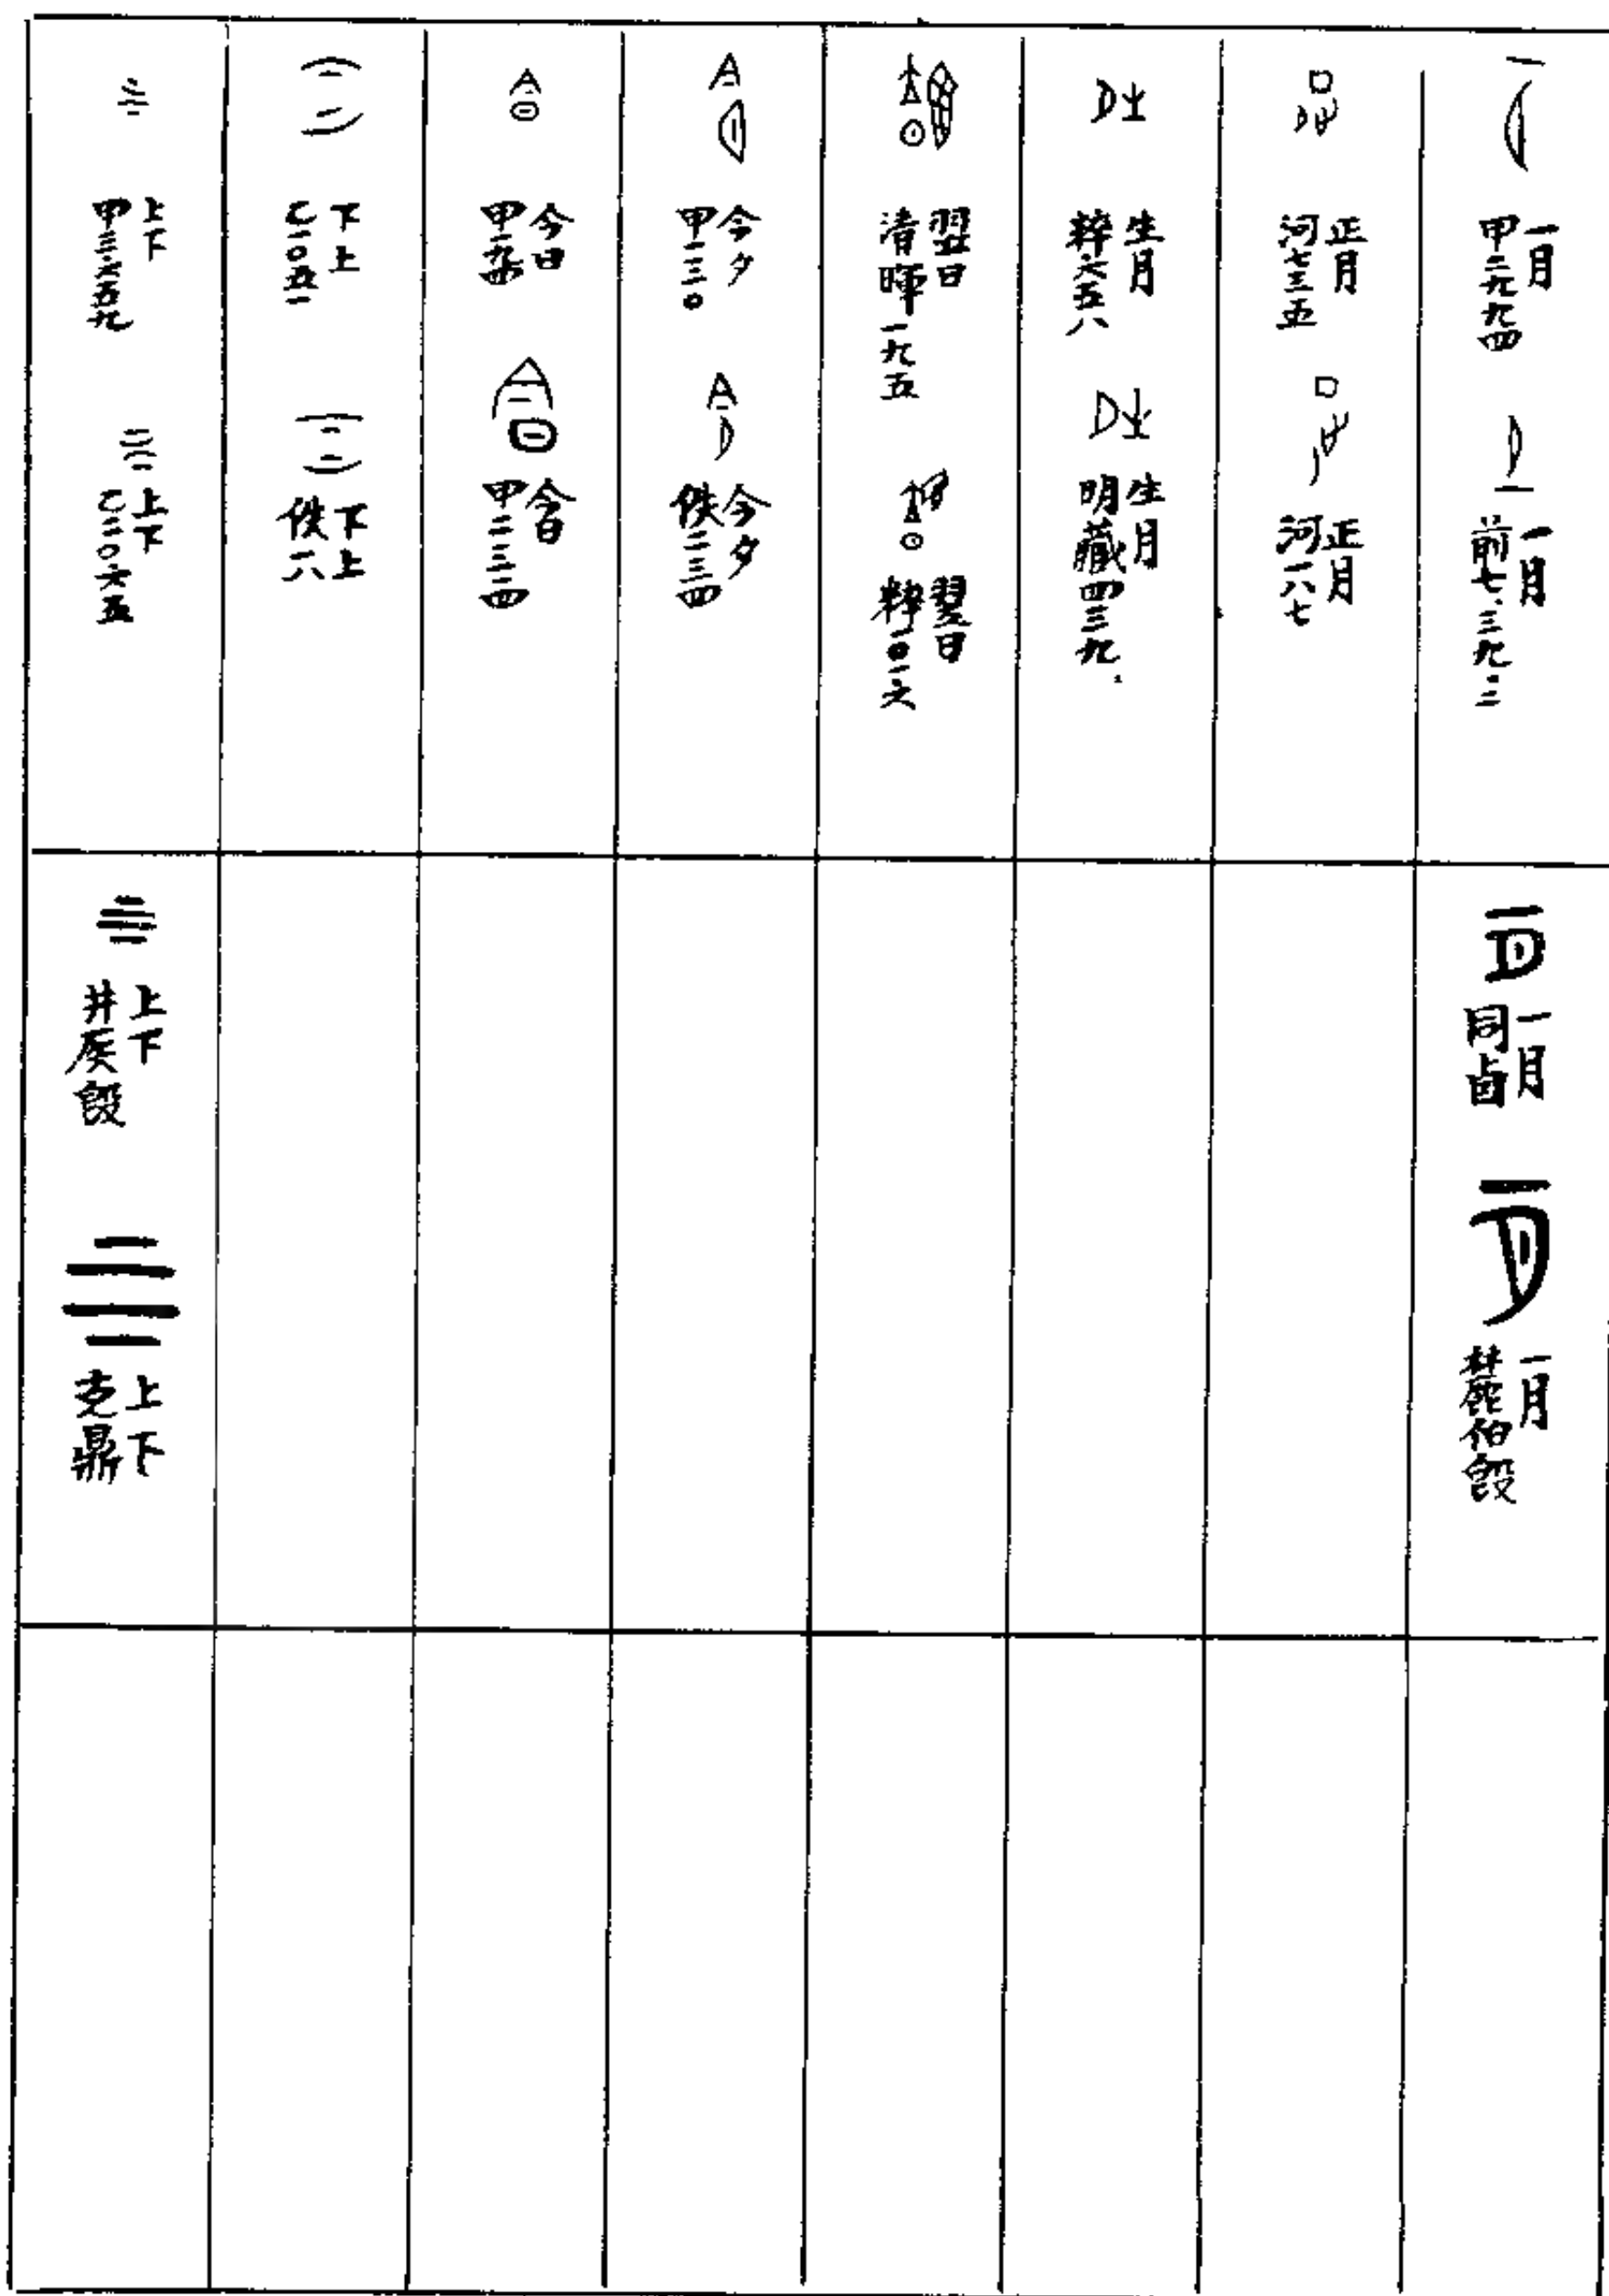 一月
甲二九九四
一月
前七.三九.二
正月
河七三五
正月
河六八七
生月
粹六五八
生月
明藏四三九.
翌日
清暉一九五
翌日
粹一〇二六
今夕
甲一三〇
今夕
佚二三四
今日
今日
甲二三三四
下上
乙一〇五一
下上
佚一八
上下
甲三六五九
上下
乙二〇六五
一月
同卣
一月
伯𣪘
上下
井侯𣪘
上下
克鼎